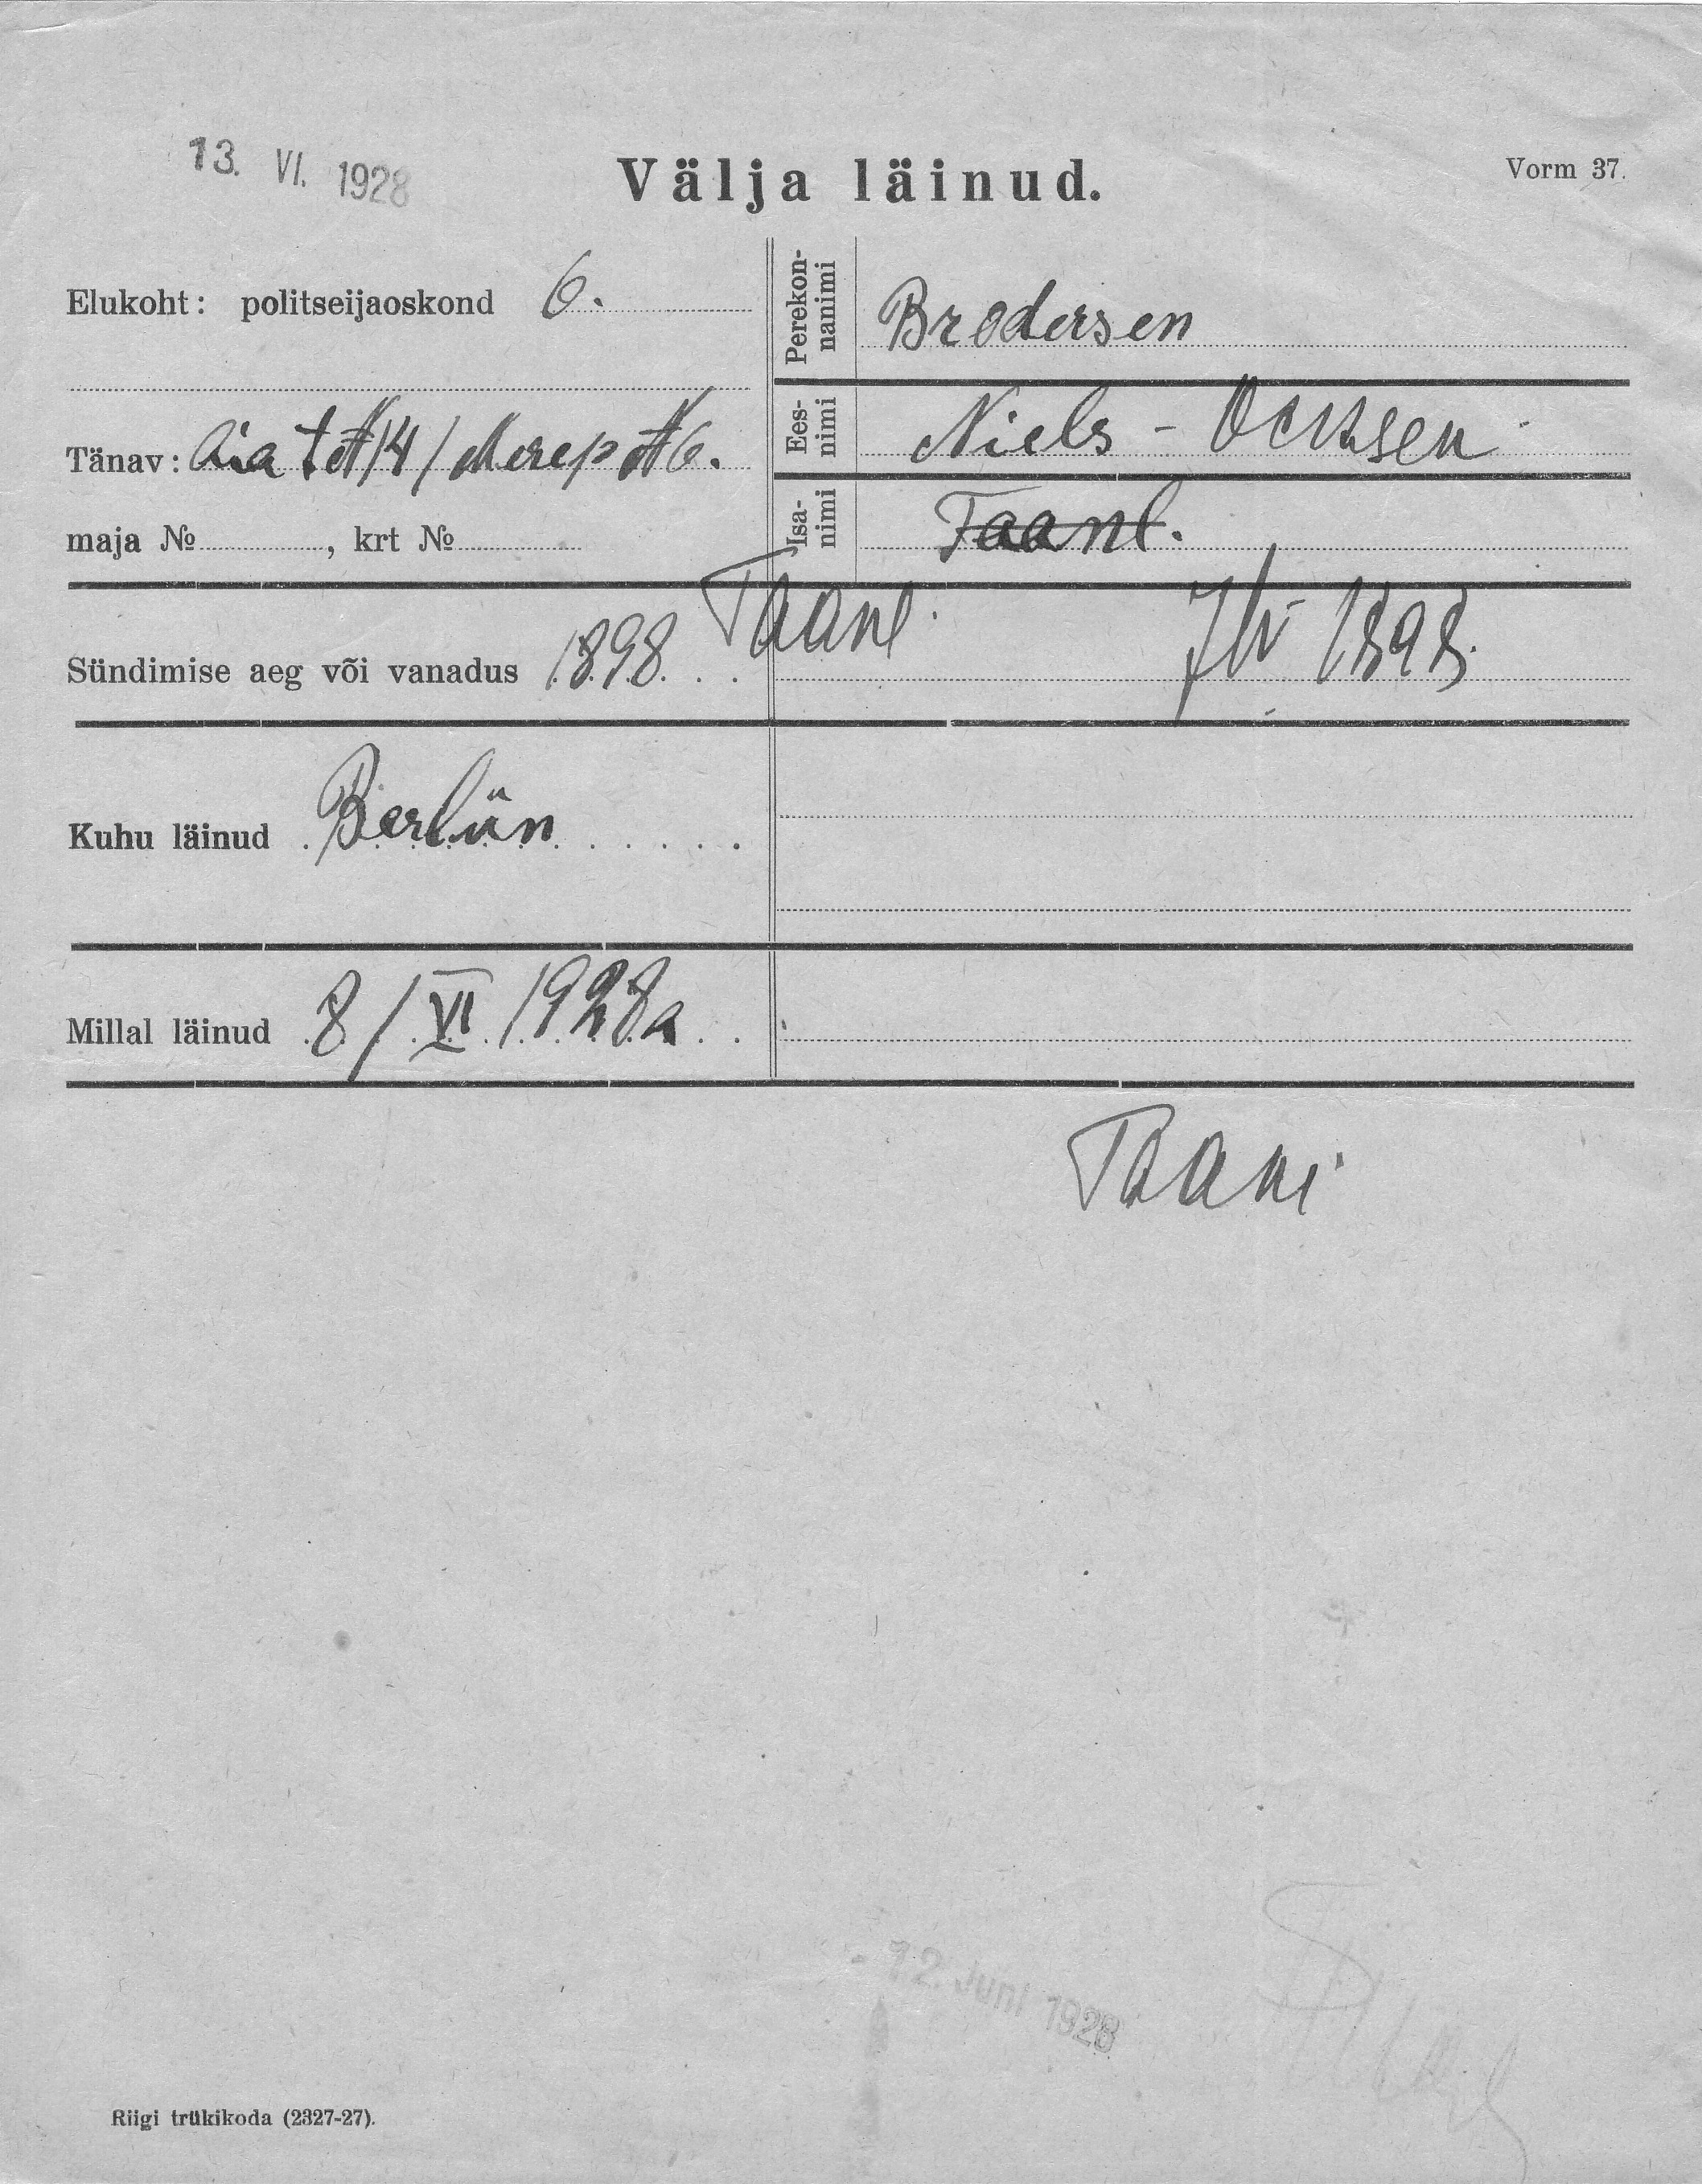 13. VI. 1928
Välja läinud.
Vorm 37.
Elukoht: politseijaoskond 6.
Tänav: Aia t № 14 / Merep № 6.
maja №, krt №
Perekon-
nanimi
Brodersen
Ees-
nimi
Niels -
Isa-
nimi
Taanl.
Sündimise aeg või vanadus 1898.
Taanl.
1898.
Kuhu läinud Berliin
Millal läinud 8/VI 1928a
Taani
12. Juni 1928
Riigi trükikoda (2327-27).